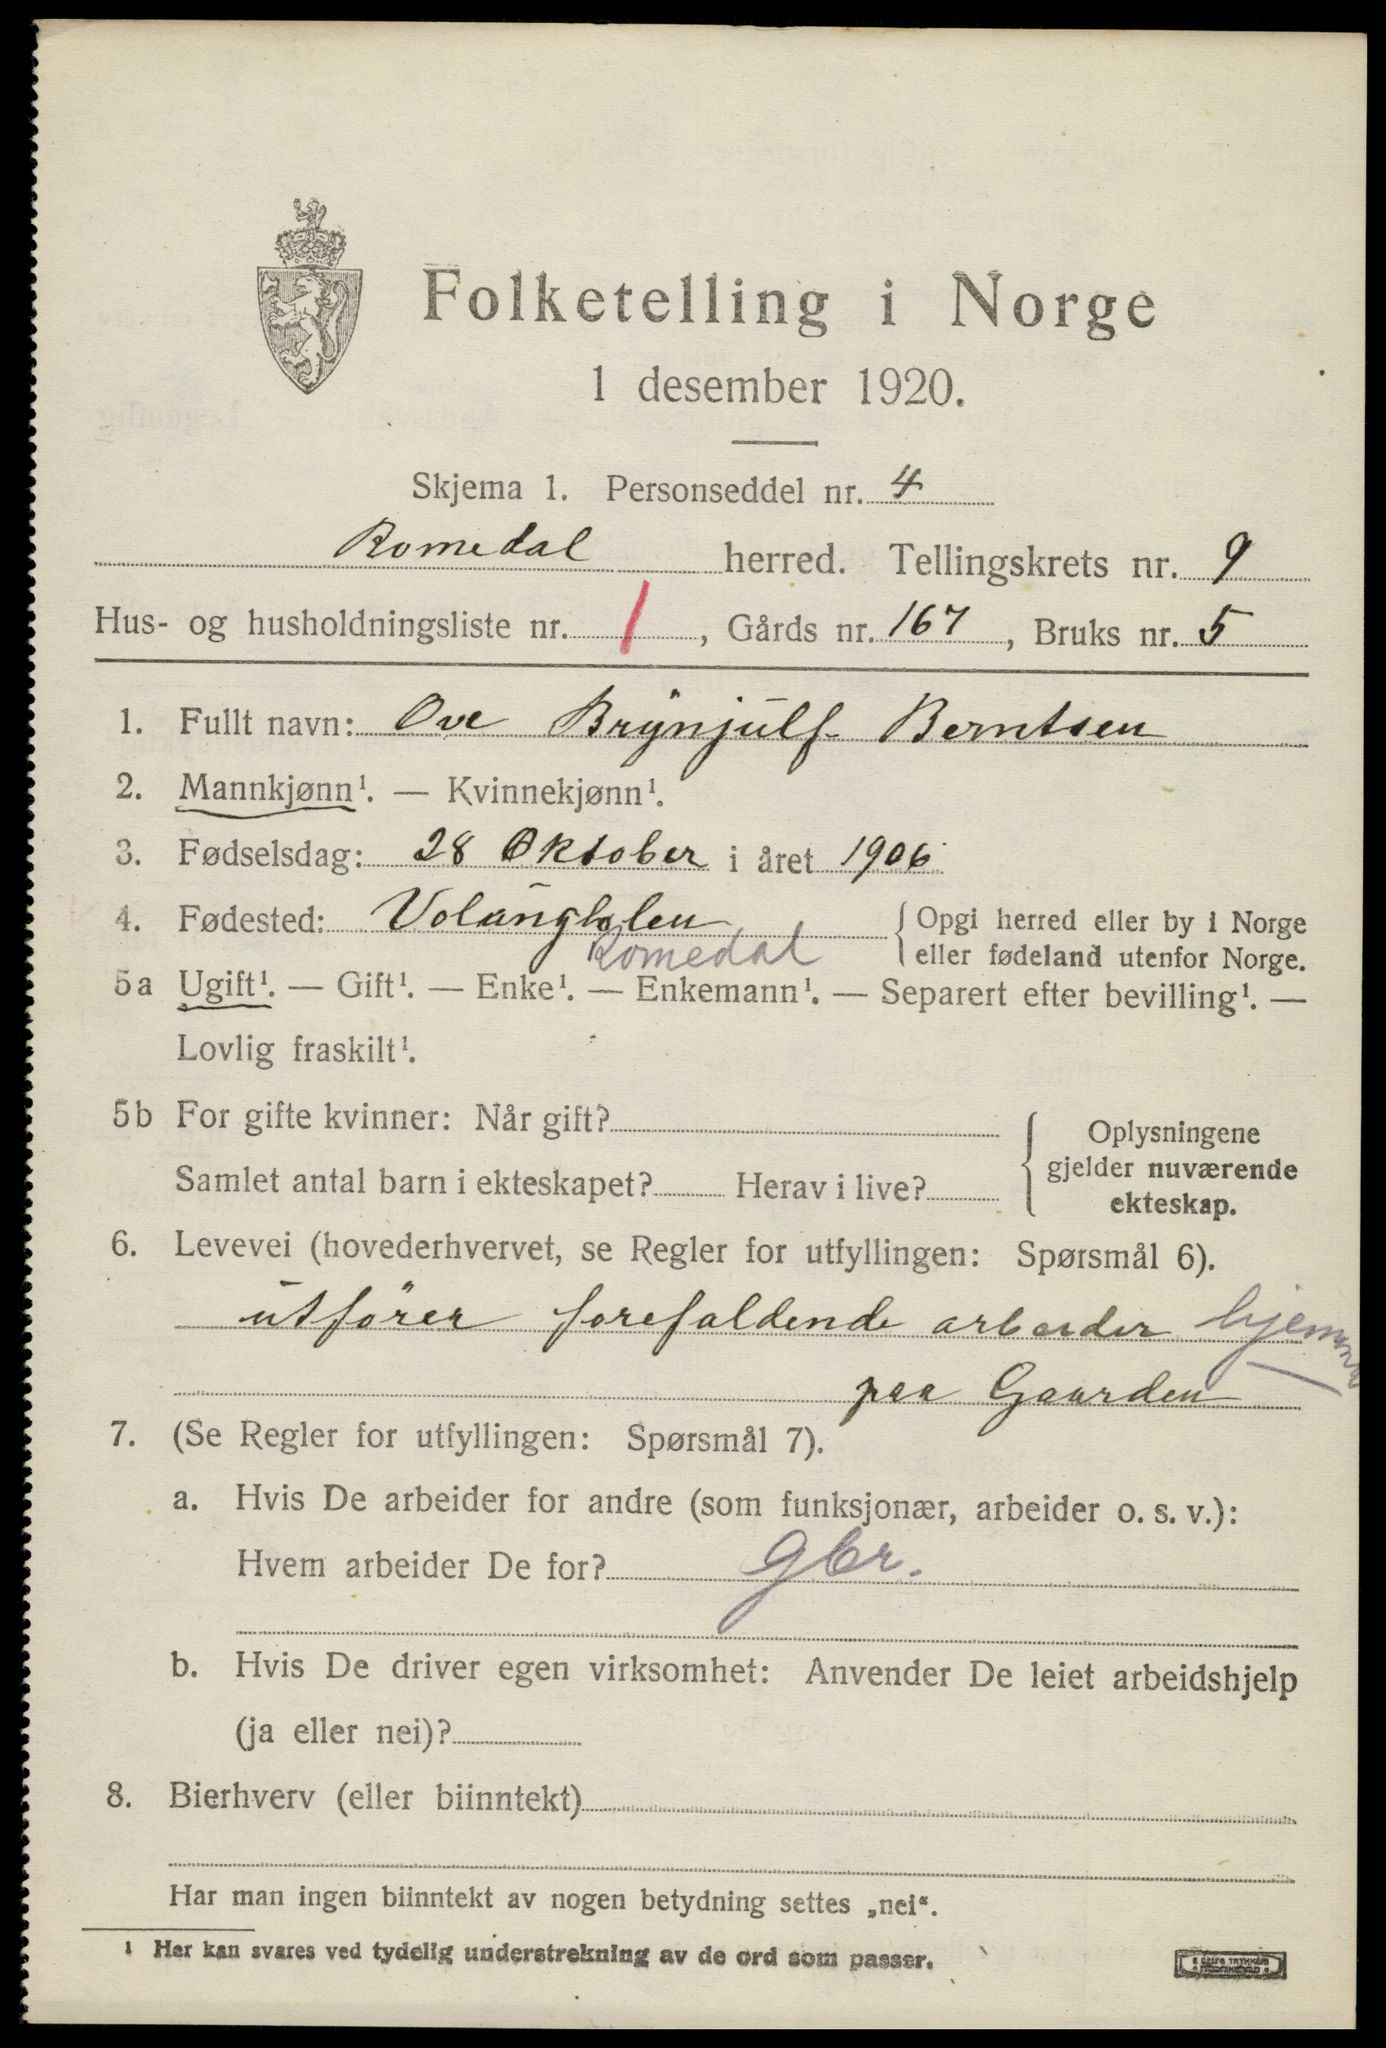 Folketelling i Norge
1 desember 1920.
Skjema 1. Personseddel nr. 4
Romedal herred. Tellingskrets nr. 9
Hus- og husholdningsliste nr. 1, Gårds nr. 167, Bruks nr. 5
1. Fullt navn: Ove Brynjulf Berntsen
2. Mannkjønn¹. — Kvinnekjønn¹.
3. Fødselsdag: 28 Oktober i året 1906
4. Fødested: Romedal { Opgi herred eller by i Norge
eller fødeland utenfor Norge.
5a Ugift¹. — Gift¹. — Enke¹. — Enkemann¹. — Separert efter bevilling¹. —
Lovlig fraskilt¹.
5b For gifte kvinner: Når gift?
Samlet antal barn i ekteskapet? Herav i live?
{ Oplysningene
gjelder nuværende
ekteskap.
6. Levevei (hovederhvervet, se Regler for utfyllingen: Spørsmål 6).
utfører forefaldende arbeider hjemme
paa Gaarden
7. (Se Regler for utfyllingen: Spørsmål 7).
a. Hvis De arbeider for andre (som funksjonær, arbeider o. s. v.):
Hvem arbeider De for? Gbr.
b. Hvis De driver egen virksomhet: Anvender De leiet arbeidshjelp
(ja eller nei)?
8. Bierhverv (eller biinntekt)
Har man ingen biinntekt av nogen betydning settes „nei“.
¹ Her kan svares ved tydelig understrekning av de ord som passer.